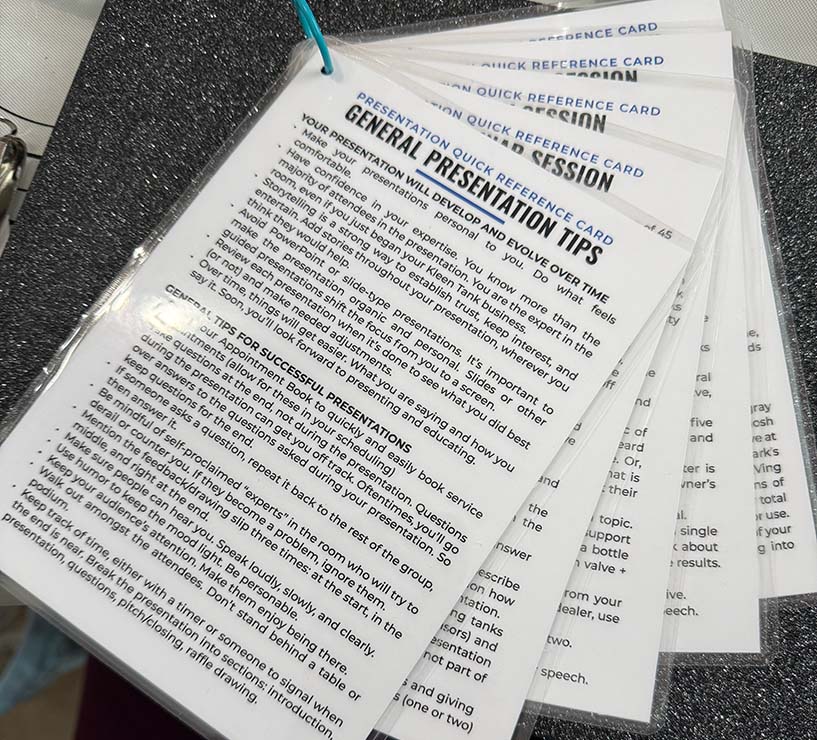 PRESENTATION QUICK REFERENCE CARD
GENERAL PRESENTATION TIPS
YOUR PRESENTATION WILL DEVELOP AND EVOLVE OVER TIME
• Make your presentations personal to you. Do what feels
comfortable.
• Have confidence in your expertise. You know more than the
majority of attendees in the presentation. You are the expert in the
room, even if you just began your Kleen Tank business.
• Storytelling is a strong way to establish trust, keep interest, and
entertain. Add stories throughout your presentation, wherever you
think they would help.
• Avoid Powerpoint or slide-type presentations. It's important to
make the presentation organic and personal. Slides or other
guided presentations shift the focus from you to a screen.
• Review each presentation when it's done to see what you did best
(or not) and make needed adjustments.
• Over time, things will get easier. What you are saying and how you
say it. Soon, you'll look forward to presenting and educating.
GENERAL TIPS FOR SUCCESSFUL PRESENTATIONS
your Appointment Book to quickly and easily book service
appointments (allow for these in your scheduling)
• Take questions at the end, not during the presentation. Questions
during the presentation can get you off track. Oftentimes, you'll go
over answers to the questions asked during your presentation. So
keep questions for the end.
• If someone asks a question, repeat it back to the rest of the group,
then answer it.
• Be mindful of self-proclaimed "experts" in the room who will try to
derail or counter you. If they become a problem, ignore them.
• Mention the feedback/drawing slip three times: at the start, in the
middle, and right at the end.
• Make sure people can hear you. Speak loudly, slowly, and clearly.
• Use humor to keep the mood light. Be personable.
• Keep your audience's attention. Make them enjoy being there.
• Walk out amongst the attendees. Don't stand behind a table or
podium.
• Keep track of time, either with a timer or someone to signal when
the end is near. Break the presentation into sections: introduction,
presentation, questions, pitch/closing, raffle drawing.
QUICK REFERENCE CARD
SESSION
of 45
and
the
the
answer
describe
on how
tanks
and
presentation
not part of
s and giving
s (one or two)
QUICK REFERENCE CARD
SESSION
of
Or,
that is
their
topic.
support
a bottle
valve +
from your
dealer, use
two.
speech.
QUICK REFERENCE CARD
SESSION
five
and
is
owner's
single
about
results.
speech.
REFERENCE CARD
at
ns of
total
use.
of your
g into